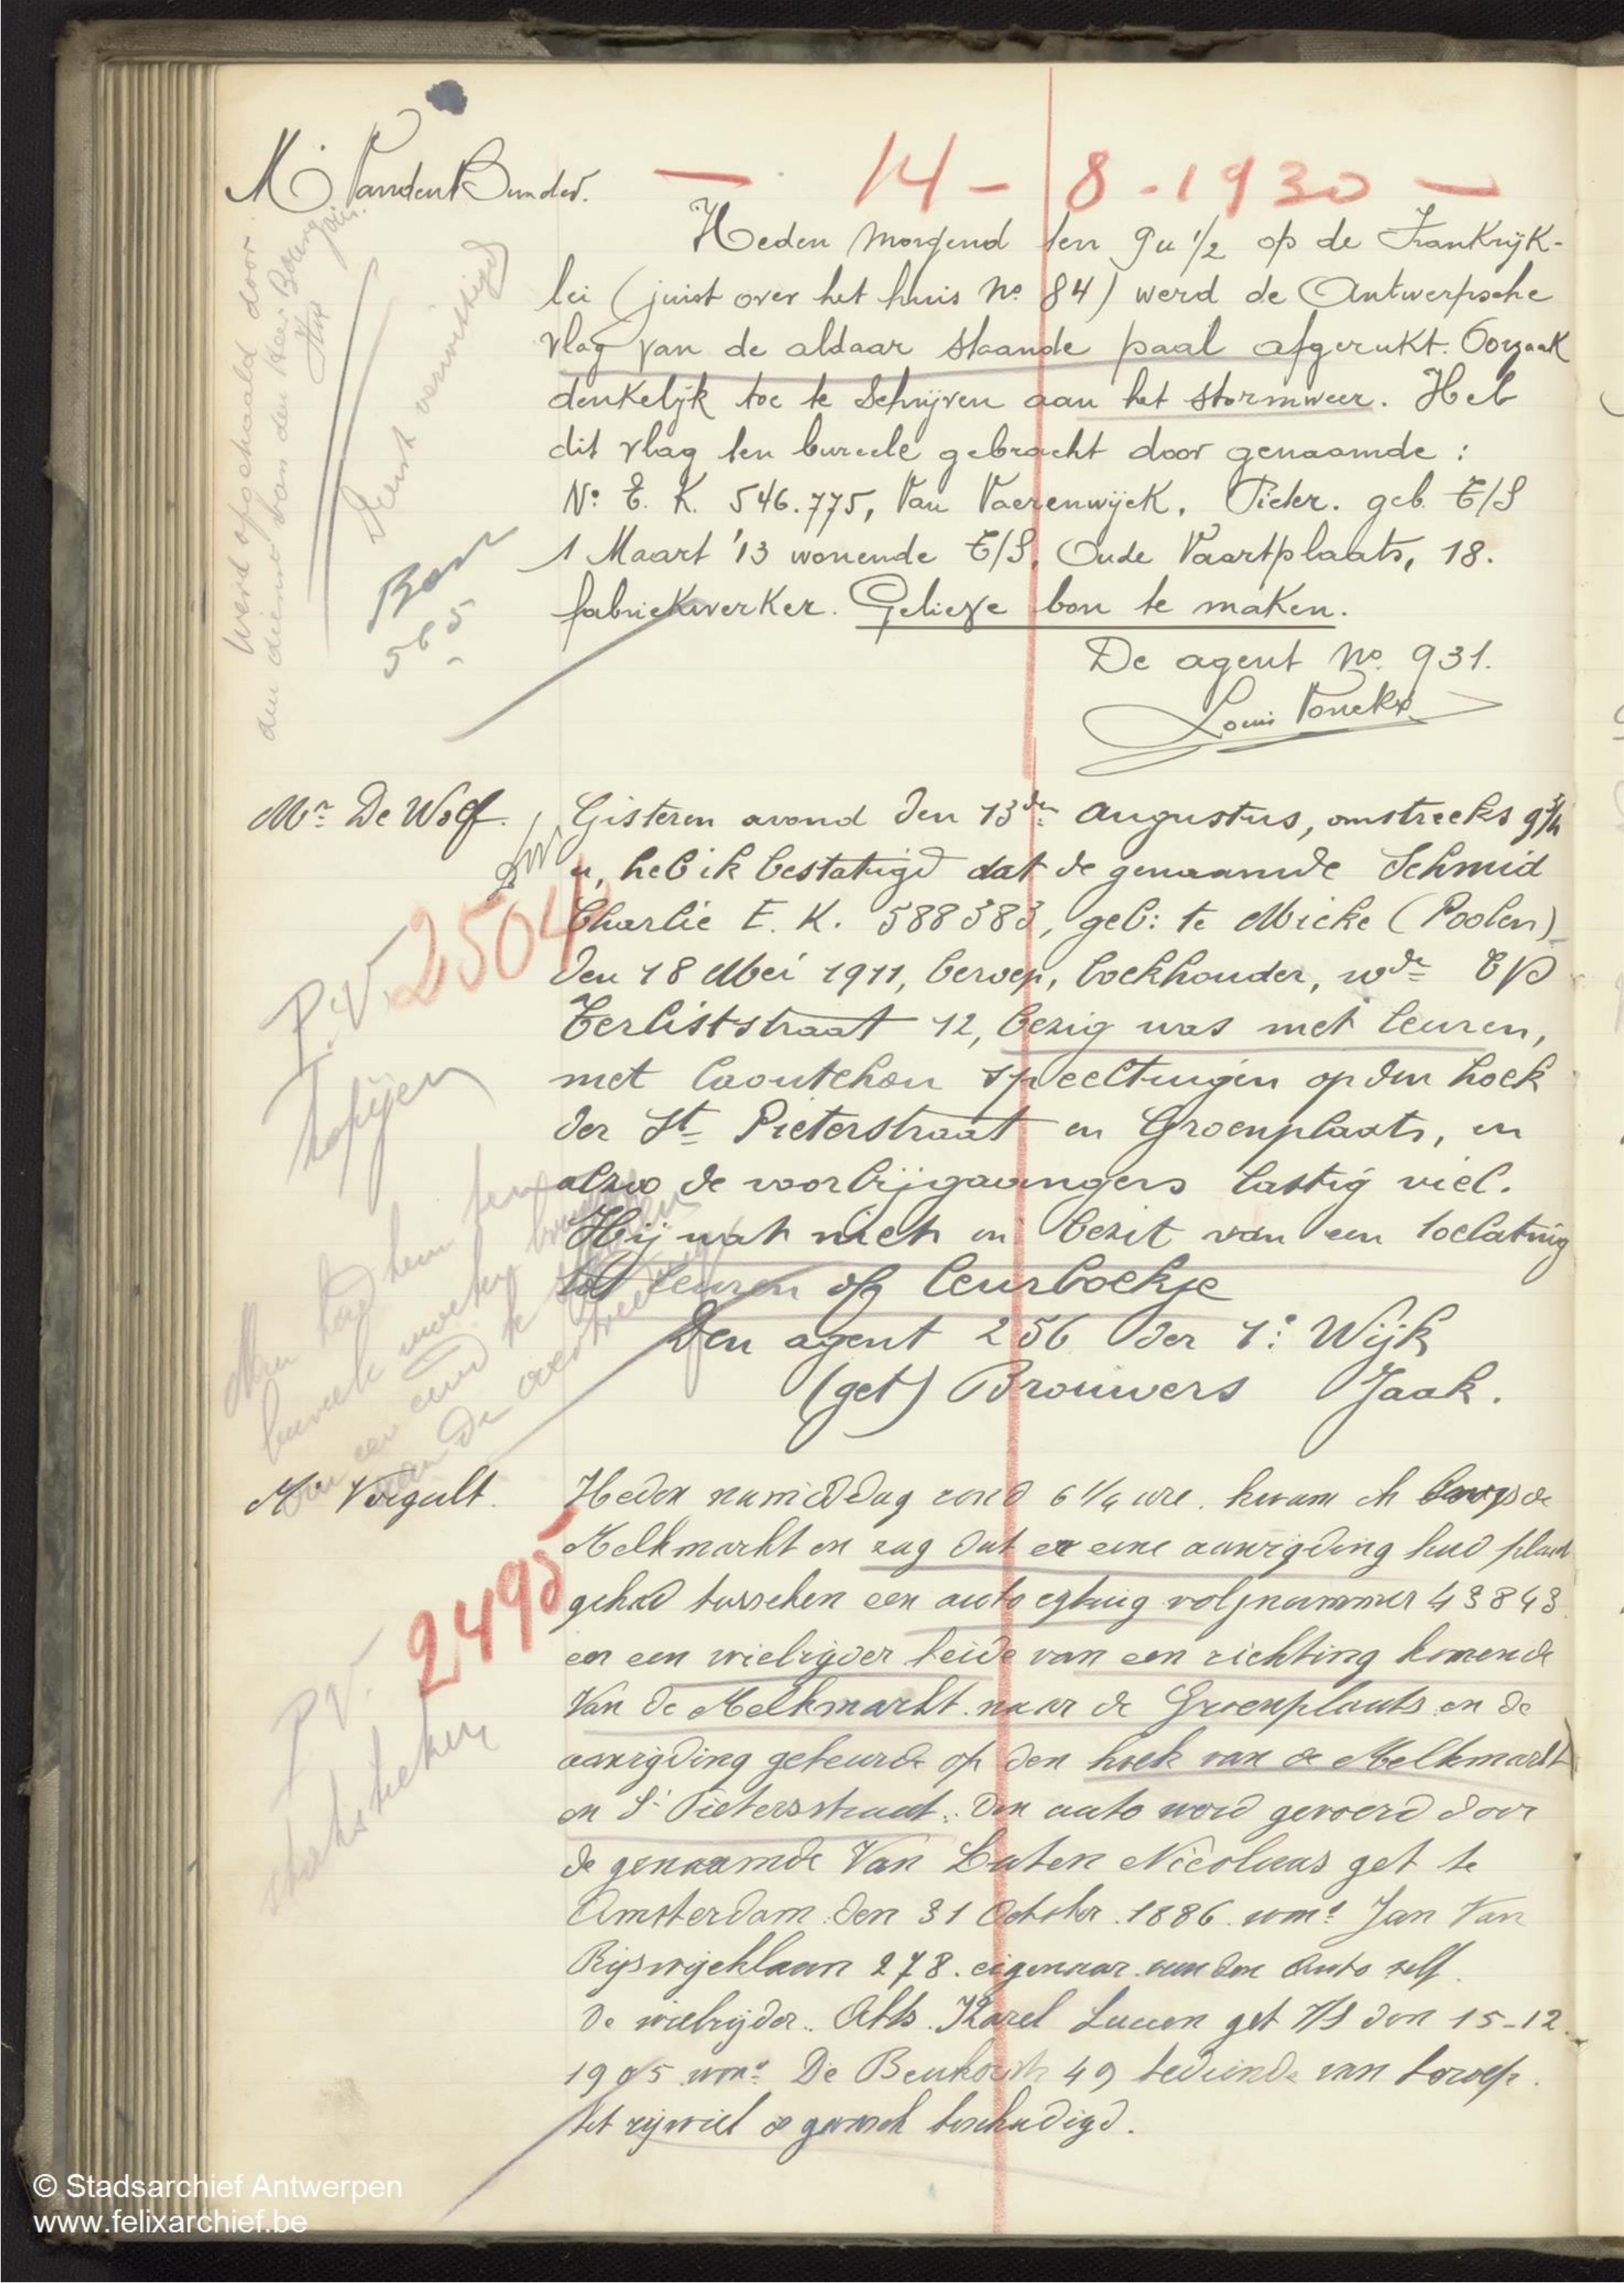 Mr Vanden Bunder.
— 14 - 8 - 1930 —
Heden morgend ten 9u 1/2 op de Frankrijk-
lei (juist over het huis No 84) werd de Antwerpsche
vlag van de aldaar staande paal afgerukt. Oorzaak
denkelijk toe te schrijven aan het stormweer. Heb
dit vlag ten bureele gebracht door genaamde :
No E. K. 546.775, Van Vaerenwijck, Pieter. geb. T/S
1 Maart '13 wonende T/S, Oude Vaartplaats, 18.
fabriekwerker. Gelieve bon te maken.
De agent No. 931.
Louis Vonckx
werd afgehaald door
den dienst van den Heer
Dienst verwittigd
Bon
565
Mr De Wolf.
Gisteren avond den 13den augustus, omstreeks 9 3/4
u, heb ik bestatigd dat de genaamde Schmid
Charlie E. K. 588383, geb: te Micke (Poolen)
den 18 Mei 1911, beroep, boekhouder, wde
Terliststraat 12, bezig was met leuren,
met caoutchou speeltuigen op den hoek
der St Pieterstraat en Groenplaats, en
alzoo de voorbijgaangers lastig viel.
Hij wat niet in bezit van een toelating
tot leuren of leurboekje
Den agent 256 der 1e Wijk
(get) Brouwers Jaak.
P.V. 2504
Men had hem ten
bureele moeten brengen
om een eind te stellen
aan de overtreding
Mr Vergult.
Heden namiddag rond 6 1/4 ure. kwam ik langs de
Melkmarkt en zag dat er eene aanrijding had plaats
gehad tusschen een auto volgnummer 43843
en een wielrijder beide van een richting komende
Van de Melkmarkt naar de Groenplaats en de
aanrijding gebeurde op den hoek van de Melkmarkt
en St Pietersstraat. Den auto werd gevoerd door
de genaamde Van Laten Nicolaas geb te
Amsterdam den 31 October 1886. wone Jan Van
Rijswijcklaan 278. eigenaar van den auto self.
De wielrijder. Karel geb T/S den 15-12
1905 wone De 49 bediende van beroep.
het rijwiel is beschadigd.
P.V. 2495
© Stadsarchief Antwerpen
www.felixarchief.be